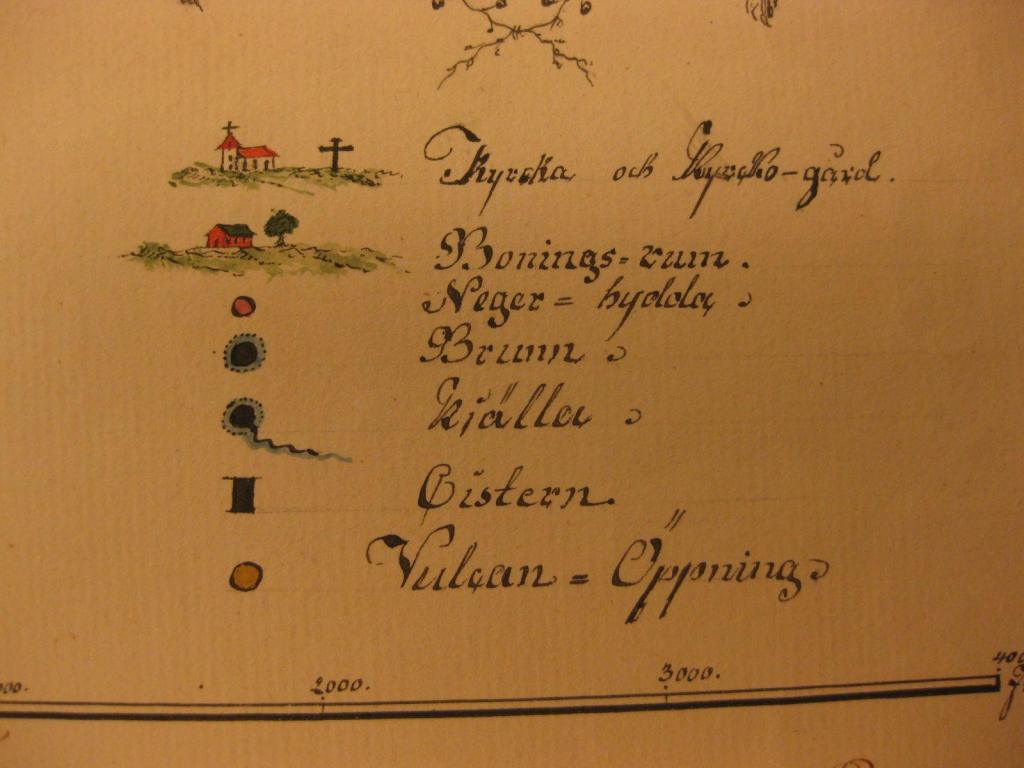 Kyrcka och Kyrcko-gård.
Bonings=rum.
Neger=hydda,
Brunn,
Kjälla,
Cistern.
Vulcan=Öppning,
2000. 3000.